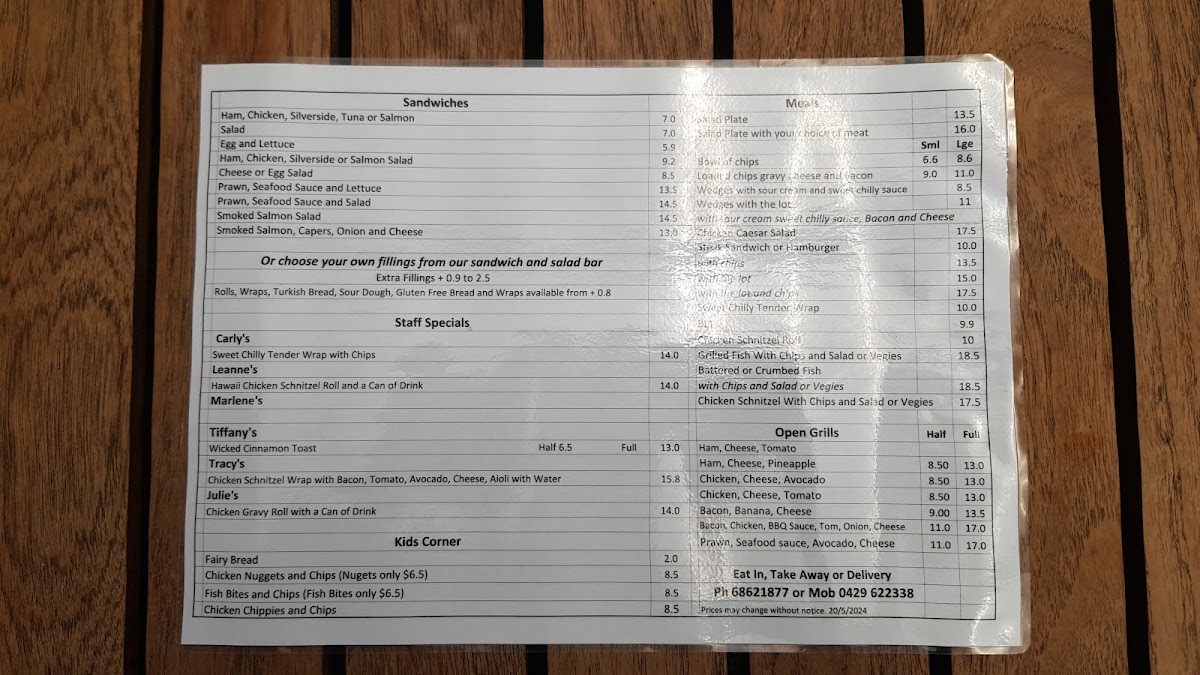 Sandwiches
Ham, Chicken, Silverside, Tuna or Salmon 7.0
Salad 7.0
Egg and Lettuce 5.9
Ham, Chicken, Silverside or Salmon Salad 9.2
Cheese or Egg Salad 8.5
Prawn, Seafood Sauce and Lettuce 13.5
Prawn, Seafood Sauce and Salad 14.5
Smoked Salmon Salad 14.5
Smoked Salmon, Capers, Onion and Cheese 13.0
Or choose your own fillings from our sandwich and salad bar
Extra Fillings + 0.9 to 2.5
Rolls, Wraps, Turkish Bread, Sour Dough, Gluten Free Bread and Wraps available from + 0.8
Staff Specials
Carly's
Sweet Chilly Tender Wrap with Chips 14.0
Leanne's
Hawaii Chicken Schnitzel Roll and a Can of Drink 14.0
Marlene's
Tiffany's
Wicked Cinnamon Toast Half 6.5 Full 13.0
Tracy's
Chicken Schnitzel Wrap with Bacon, Tomato, Avocado, Cheese, Aioli with Water 15.8
Julie's
Chicken Gravy Roll with a Can of Drink 14.0
Kids Corner
Fairy Bread 2.0
Chicken Nuggets and Chips (Nugets only $6.5) 8.5
Fish Bites and Chips (Fish Bites only $6.5) 8.5
Chicken Chippies and Chips 8.5
Meals
Salad Plate 13.5
Salad Plate with your choice of meat 16.0
Sml Lge
Bowl of chips 6.6 8.6
Loaded chips gravy cheese and bacon 9.0 11.0
Wedges with sour cream and sweet chilly sauce 8.5
Wedges with the lot 11
with sour cream sweet chilly sauce, Bacon and Cheese
Chicken Caesar Salad 17.5
Steak Sandwich or Hamburger 10.0
with chips 13.5
with the lot 15.0
with the lot and chips 17.5
Sweet Chilly Tender Wrap 10.0
BLT 9.9
Chicken Schnitzel Roll 10
Grilled Fish With Chips and Salad or Vegies 18.5
Battered or Crumbed Fish
with Chips and Salad or Vegies 18.5
Chicken Schnitzel With Chips and Salad or Vegies 17.5
Open Grills Half Full
Ham, Cheese, Tomato
Ham, Cheese, Pineapple 8.50 13.0
Chicken, Cheese, Avocado 8.50 13.0
Chicken, Cheese, Tomato 8.50 13.0
Bacon, Banana, Cheese 9.00 13.5
Bacon, Chicken, BBQ Sauce, Tom, Onion, Cheese 11.0 17.0
Prawn, Seafood sauce, Avocado, Cheese 11.0 17.0
Eat In, Take Away or Delivery
Ph 68621877 or Mob 0429 622338
Prices may change without notice. 20/5/2024